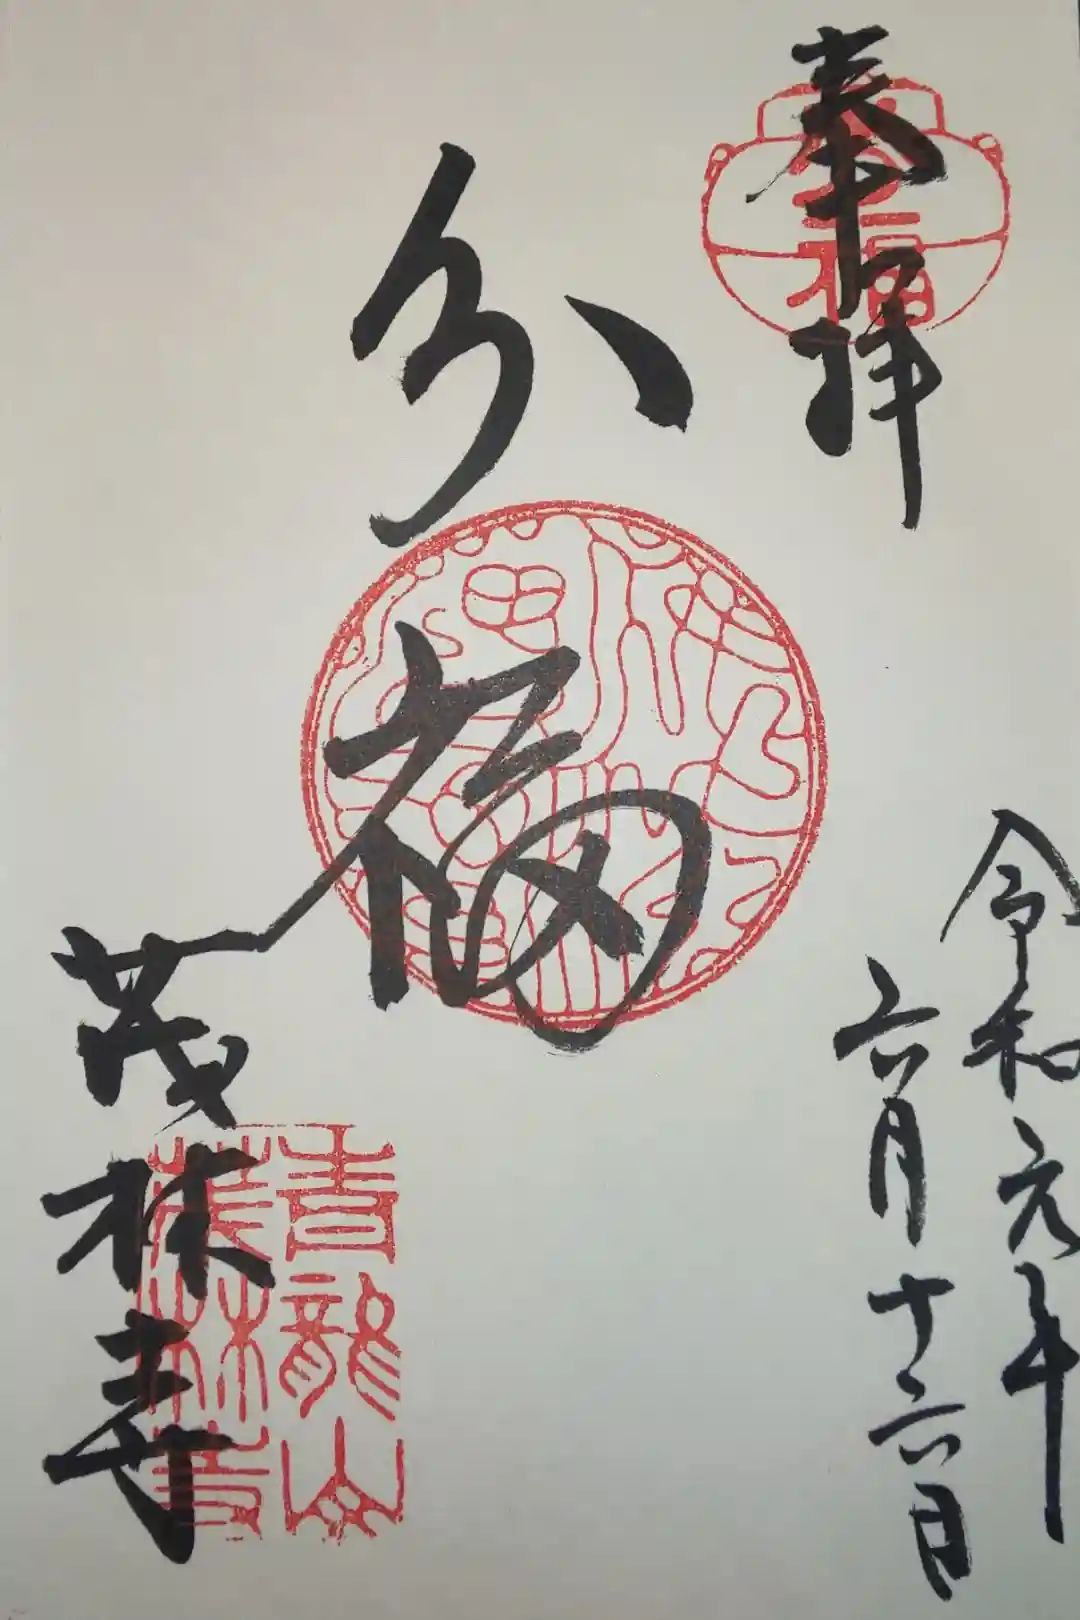 奉拝
令和元年
六月十六日
分福
茂林寺
青龍山
茂林寺